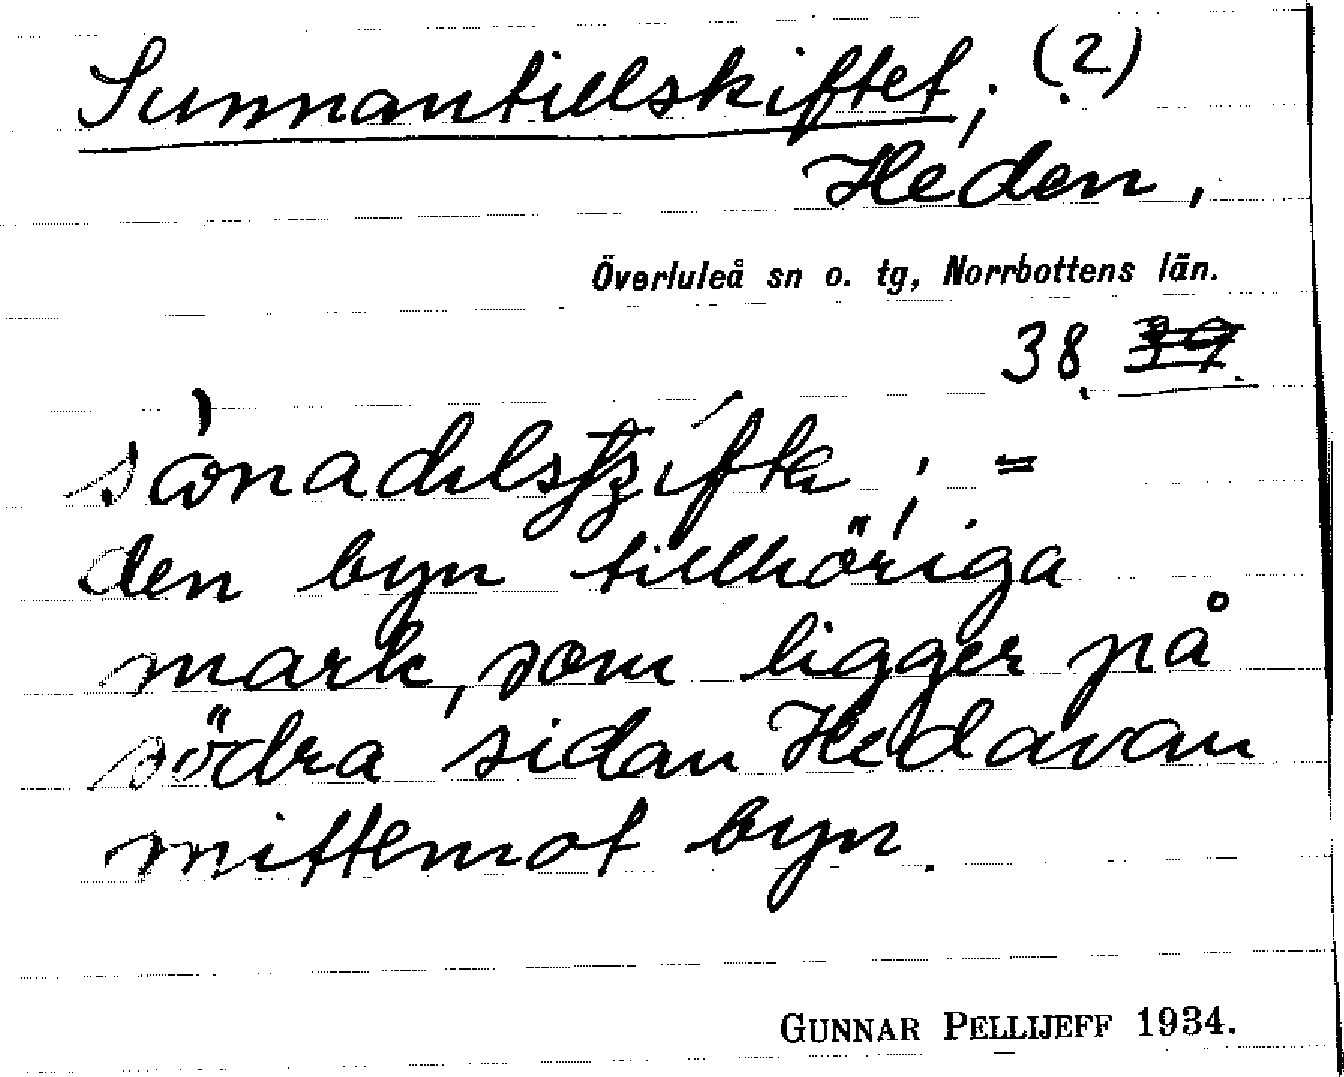 Sunnantillskiftet, (2)
Heden,
Överluleå sn o. tg, Norrbottens län.
38. 39.
; =
den byn tillhöriga
mark, som ligger på
södra sidan Hedavan
mittemot byn.
GUNNAR PELLIJEFF 1934.